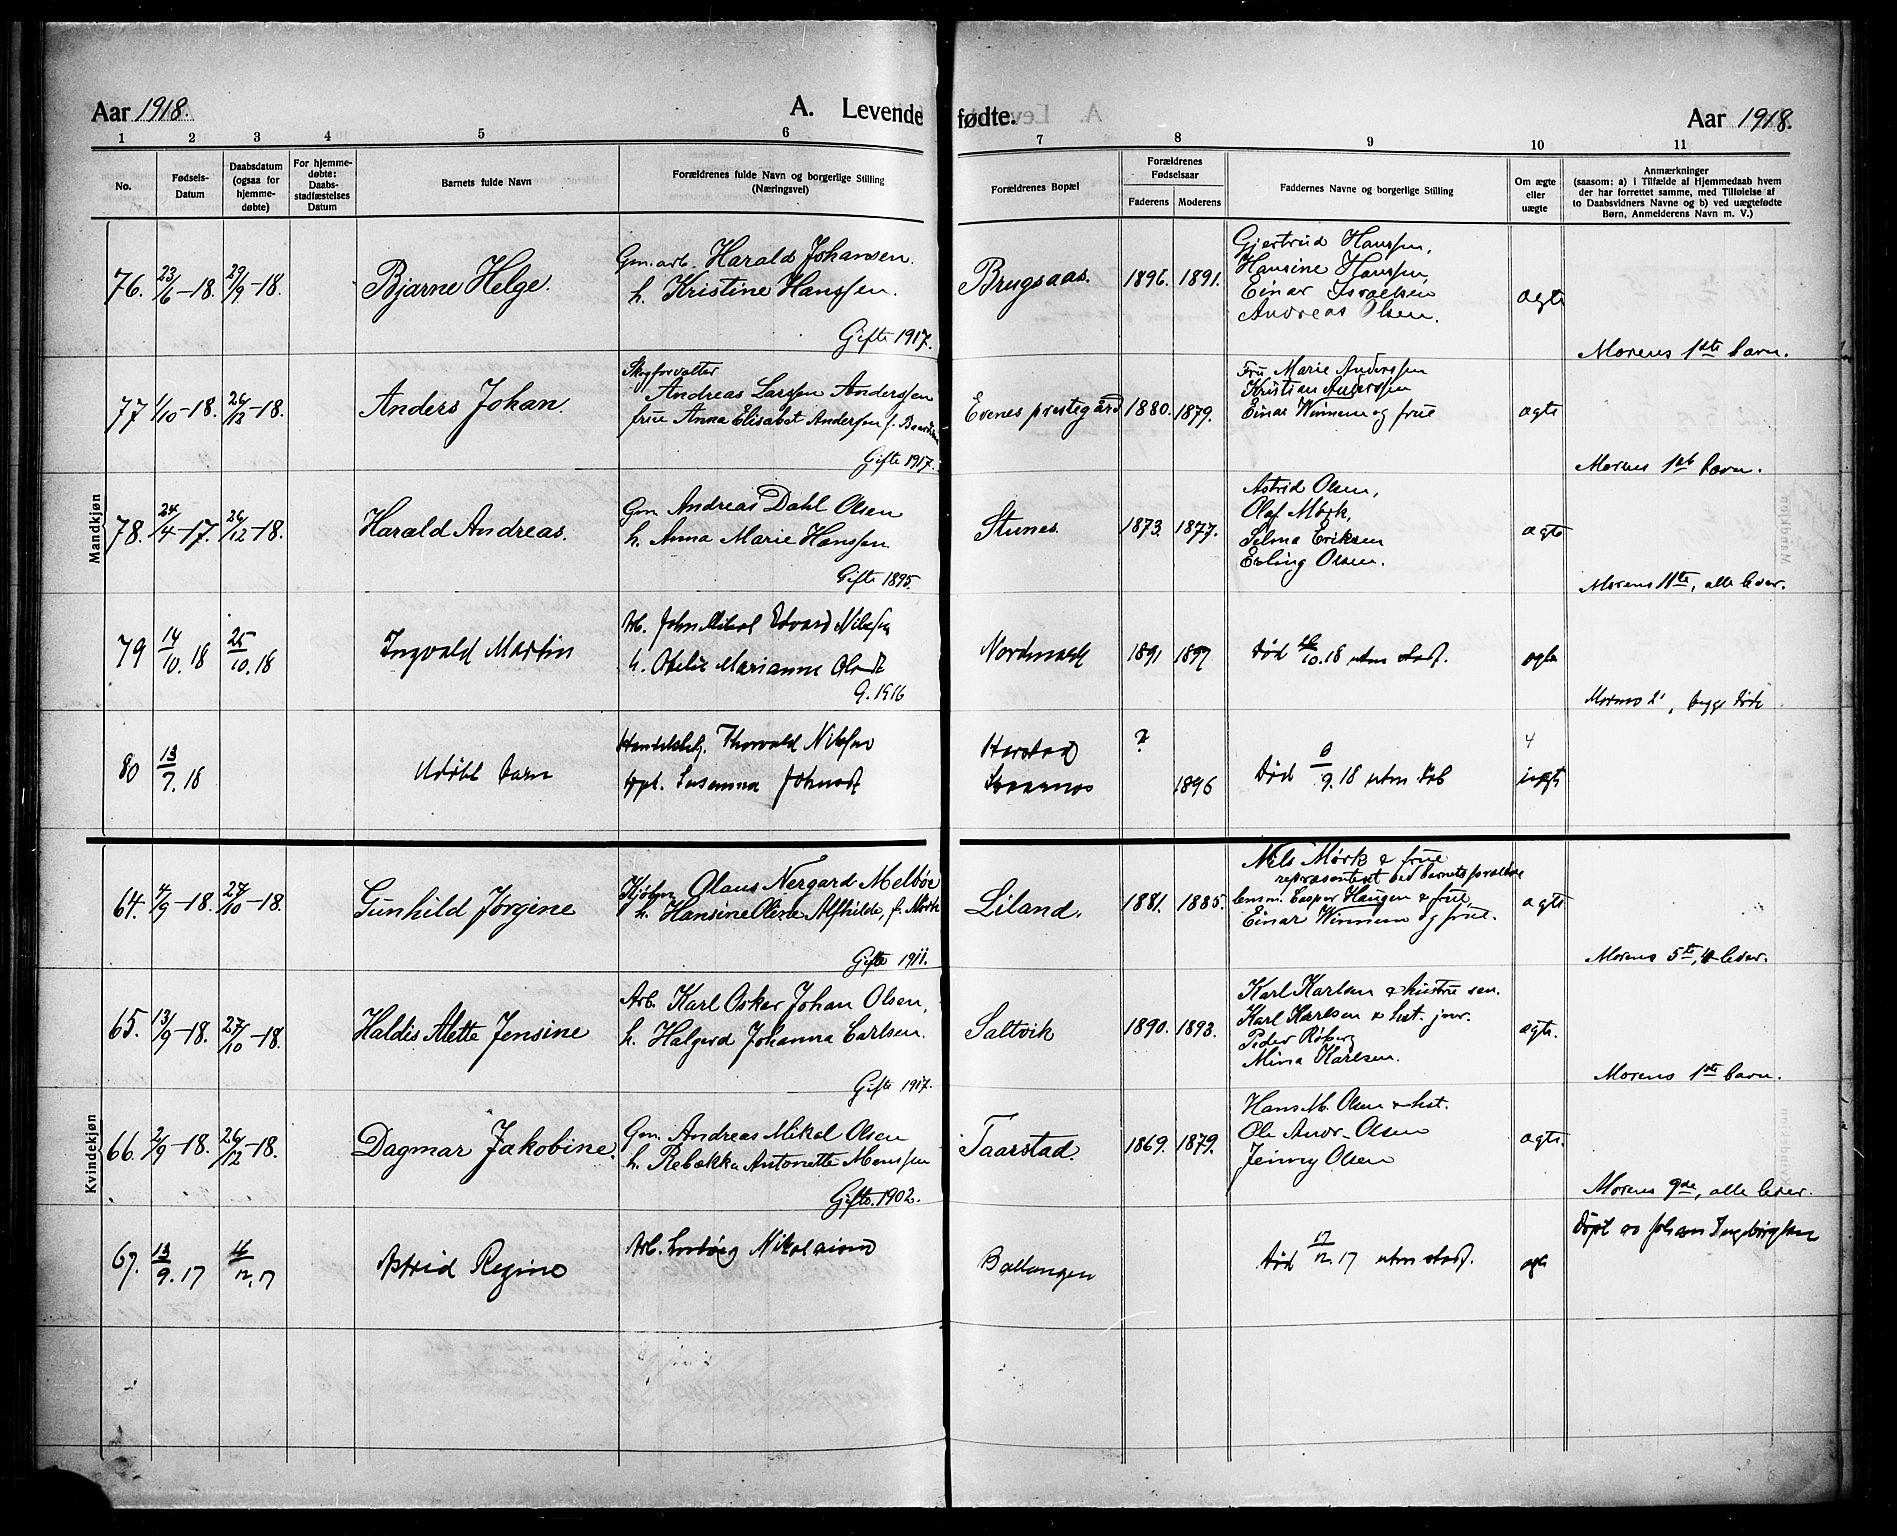 Aar 1918. A. Levende fødte. Aar 1918.
1 2 3 4 5 6 7 8 9 10 11
No.
Fødsels-
Datum
Daabsdatum
(ogsaa for
hjemme-
døbte)
For hjemme-
døbte:
Daabs-
stadfæstelses
Datum
Barnets fulde Navn
Forældrenes fulde Navn og borgerlige Stilling
(Næringsvei)
Forældrenes Bopæl
Forældrenes
Fødselsaar
Faderens Moderens
Faddernes Navne og borgerlige Stilling
Om ægte
eller
uægte
Anmærkninger
(saasom: a) i Tilfælde af Hjemmedaab hvem
der har forrettet samme, med Tilføielse af
to Daabsvidners Navne og b) ved uægtefødte
Børn, Anmelderens Navn m. V.)
Mandkjøn
76. 23/6-18. 29/9-18. Bjarne Helge.
Gm. arb. Harald Johansen.
h. Kristine Hanssen.
Gifte 1917.
Brugsaas. 1896. 1891.
Gjertrud Hanssen,
Hansine Hanssen,
Einar Israelsen
Andreas Olsen.
ægte
Morens 1ste barn.
77 1/10-18. 26/12-18. Anders Johan.
Skogforvalter
Andreas Larssen Anderssen
frue Anna Elisabet Andersen f.
Gifte 1917.
Evenes prestegård 1880. 1879.
Fru Marie Anderssen
Kristian Anderssen
Einar Winnem og frue
ægte
Morens 1ste barn.
78. 24/4-17. 26/12-18. Harald Andreas.
Gm. Andreas Dahl Olsen
h. Anna Marie Hanssen.
Gifte 1895.
Stunes. 1873. 1877.
Astrid Olsen,
Olaf Mørk,
Selma Eriksen
Erling Olsen.
ægte
Morens 11te, alle lever.
79 14/10.18 25/10.18 Ingvald Martin
Arb. John Mikal Edvard Nilssen
h. Marianne
G. 1916
Nordmark 1891 1897
Død 26/10.18 uten stadf.
ægte
Morens 2', begge døde
80 13/7.18 Udøbt barn
Handelsbetj. Thorvald Nilssen
Ugpl. Susanna Johnsdt
Harstad ?
1896
Død 6/9.18 uten dåb
4
uægte
Kvindekjøn
64. 4/9-18. 27/10-18. Gunhild Jørgine
Kjøbm. Olaus Nergard Melbøe
h. Hansine Olera Alfhilde, f. Mørk
Gifte 1911.
Liland. 1881. 1885.
Nils Mørk & frue
repræsentert ved barnets forældre
lensm. Casper Haugen & frue,
Einar Winnem og frue.
ægte
Morens 5te, 4 lever.
65. 13/9-18. 27/10-18. Haldis Alette Jensine
Arb. Karl Oskar Johan Olsen,
h. Halgerd Johanna Carlsen.
Gifte 1917.
Saltvik 1890. 1893.
Karl Karlsen & hustru sen.
Karl Karlsen & hust. junr.
Peder Røberg
Mina Karlsen.
ægte.
Morens 1ste barn.
66. 2/9-18. 26/12-18. Dagmar Jakobine.
Gm. Andreas Mikal Olsen
h. Rebekka Antonette Monssen
Gifte. 1902.
Taarstad. 1869. 1879.
Hans M. Olsen & hust.
Ole Andr. Olsen
Jenny Olsen
ægte.
Morens 9de, alle lever.
67. 13/9.17 16/12.17 Astrid Regine
Arb. Nikolaisen
Ballangen
Død 17/12.17 uten stadf.
ægte
Døpt av Johan Ingebrigtsen